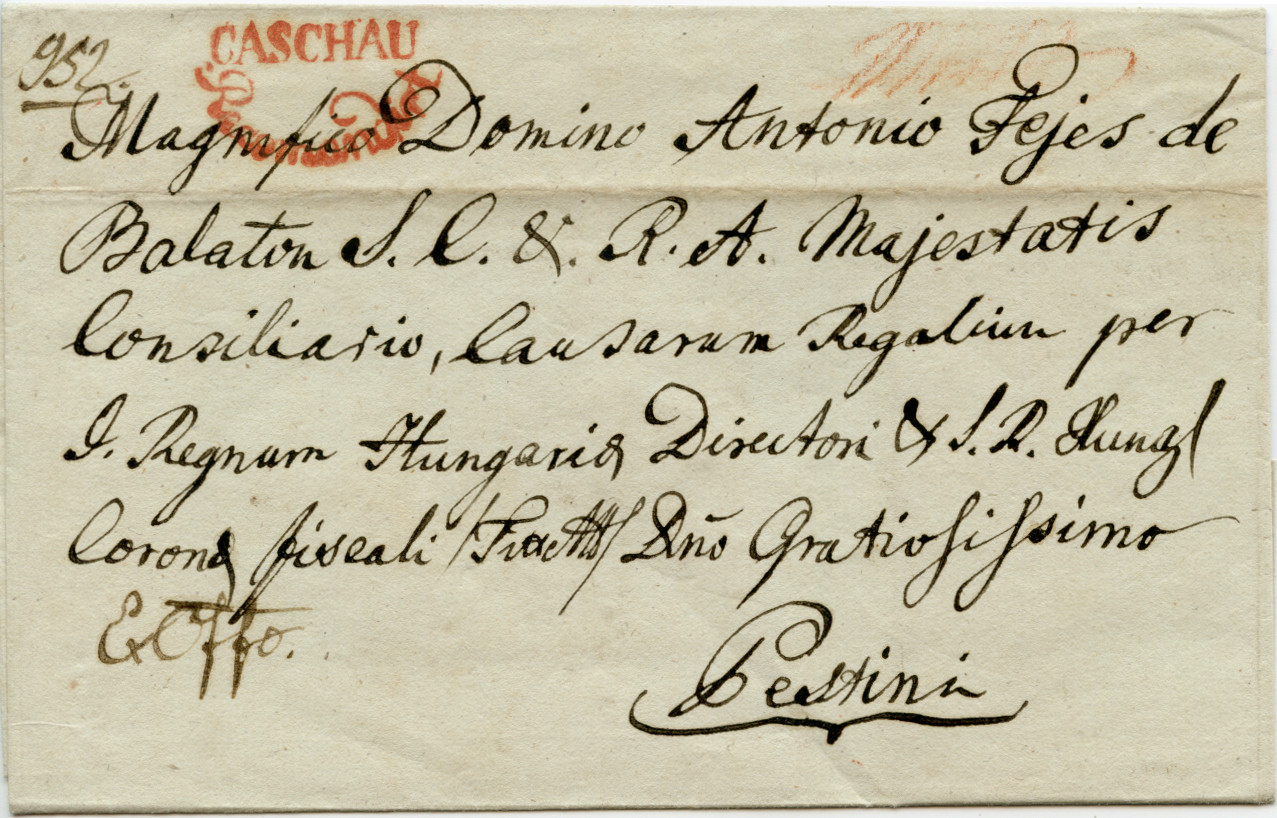 952.
CASCHAU
Magnifico Domino Antonio Fejes de
Balaton S. C. & R. A. Majestatis
Consiliario, Causarum Regalium per
I. Regnum Hungariæ Directori & S. R. Hung
Coronæ fiscali Dño Gratiosissimo
Ex Offo.
Pestini